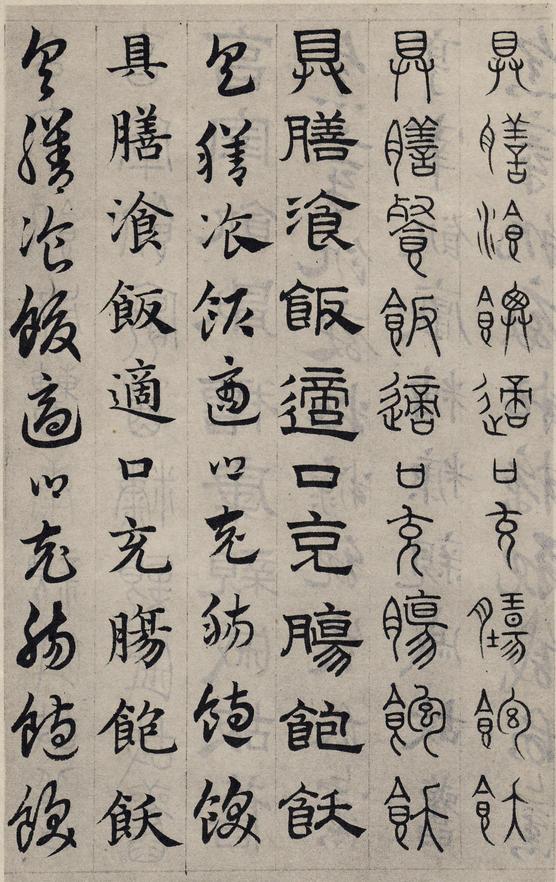 具膳湌飯適口充腸飽飫
具膳餐飯適口充腸飽飫
具膳湌飯適口充腸飽飫
具膳湌飯適口充腸飽飫
具膳湌飯適口充膓飽飫
具膳湌飯適口充腸飽飫